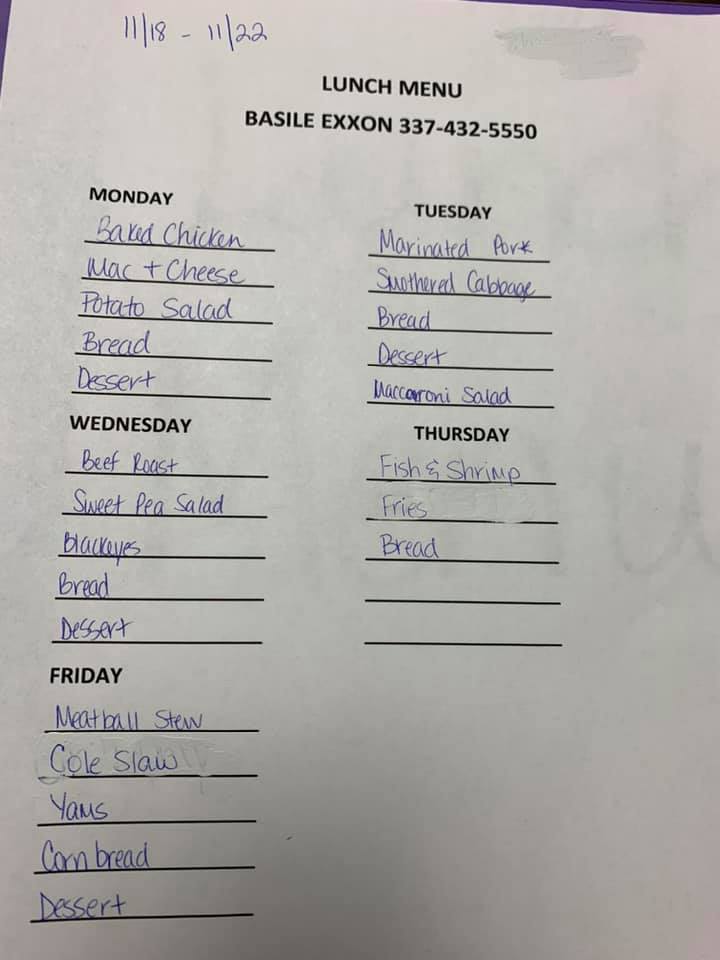 11/18 - 11/22
LUNCH MENU
BASILE EXXON 337-432-5550
MONDAY
Baked Chicken
Mac + Cheese
Potato Salad
Bread
Dessert
TUESDAY
Marinated Pork
Smothered Cabbage
Bread
Dessert
Maccaroni Salad
WEDNESDAY
Beef Roast
Sweet Pea Salad
Blackeyes
Bread
Dessert
THURSDAY
Fish & Shrimp
Fries
Bread
FRIDAY
Meatball Stew
Cole Slaw
Yams
Corn bread
Dessert